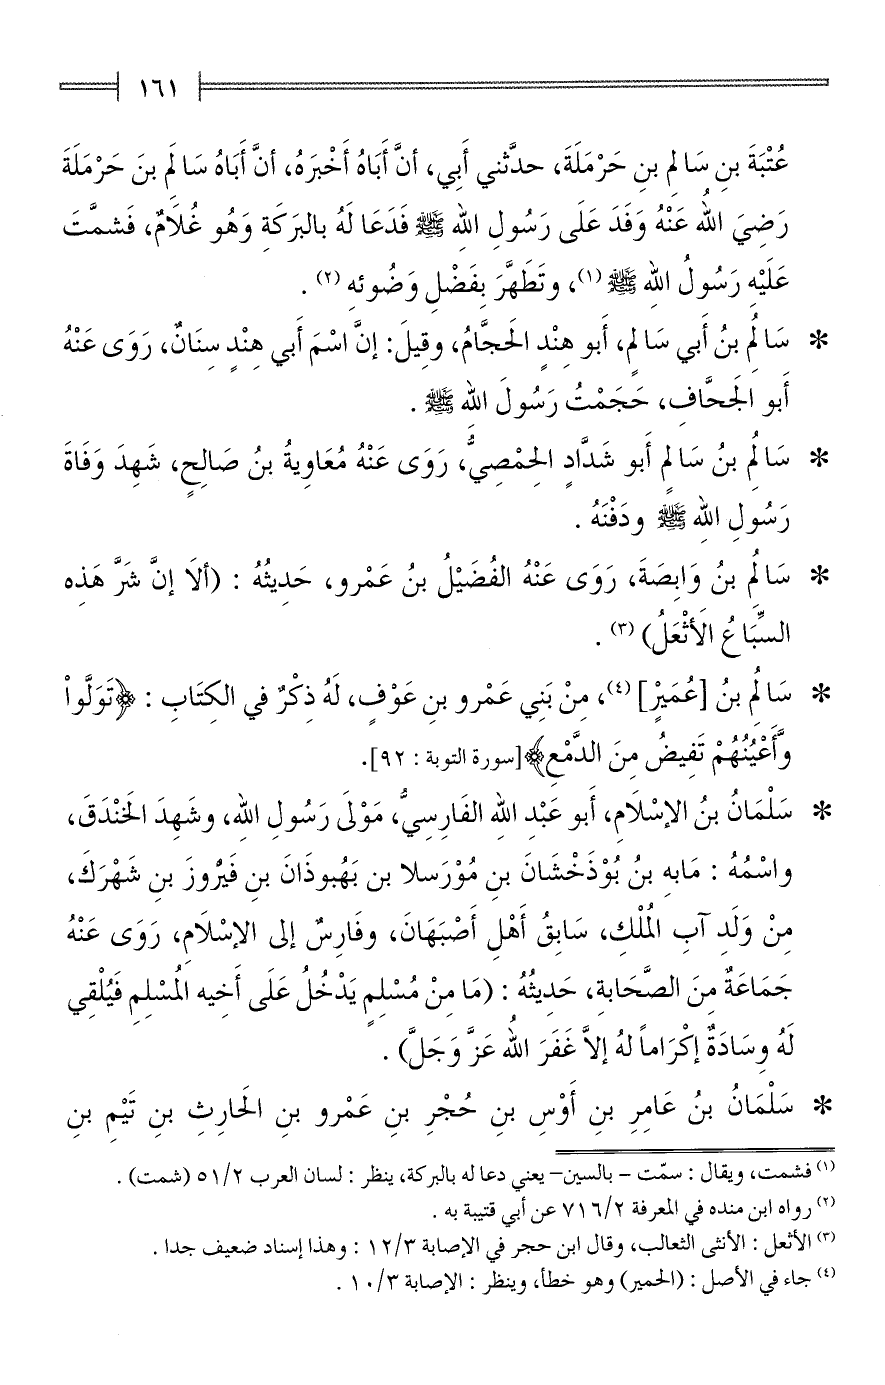 ١٦١
عُتْبَةَ بنِ سَالمِ بنِ حَرْمَلَةَ، حدَّثني أَبي، أنَّ أَبَاهُ أَخْبَرَهُ، أنَّ أَبَاهُ سَالَمَ بنَ حَرْمَلَةَ
رَضِيَ اللهُ عَنْهُ وَفَدَ عَلَى رَسُولِ اللهِ ﷺ فَدَعَا لَهُ بالبَرَكَةِ وَهُو غُلَامٌ، فَشمَّتَ
عَلَيْهِ رَسُولُ اللهِ ﷺ (١)، وتَطَهَّرَ بِفَضْلِ وَضُوئهِ (٢) .
* سَالمُ بنُ أَبي سَالمٍ، أَبو هِنْدٍ الحَجَّامُ، وقِيلَ: إنَّ اسْمَ أَبي هِنْدٍ سِنَانٌ، رَوَى عَنْهُ
أَبو الجَحَّافِ، حَجَمْتُ رَسُولَ اللهِ ﷺ .
* سَالمُ بنُ سَالمٍ أَبو شَدَّادٍ الحِمْصِيُّ، رَوَى عَنْهُ مُعَاوِيةُ بنُ صَالِحٍ، شَهِدَ وَفَاةَ
رَسُولِ اللهِ ﷺ ودَفْنَهُ .
* سَالمُ بنُ وَابِصَةَ، رَوَى عَنْهُ الفُضَيْلُ بنُ عَمْرو، حَدِيثُهُ : (ألَا إنَّ شَرَّ هَذِه
السِّبَاعُ الأَثْعَلُ) (٣) .
* سَالمُ بنُ [عُمَيْرٍ] (٤)، مِنْ بَنِي عَمْرو بنِ عَوْفٍ، لَهُ ذِكْرٌ في الكِتَابِ : ﴿تَوَلَّواْ
وَّأَعْيُنُهُمْ تَفِيضُ مِنَ الدَّمْعِ﴾[سورة التوبة : ٩٢].
* سَلْمَانُ بنُ الإسْلَامِ، أَبو عَبْدِ اللهِ الفَارِسيُّ، مَوْلَى رَسُولِ اللهِ، وشَهِدَ الخَنْدَقَ،
واسْمُهُ : مَابِه بنُ بُوْذَخْشَانَ بنِ مُوْرَسلا بن بَهْبوذَانَ بنِ فَيْرُوزَ بنِ شَهْرَكَ،
مِنْ وَلَدِ آبِ المُلْكِ، سَابِقُ أَهْلِ أَصْبَهَانَ، وفَارِسٌ إلى الإسْلَامِ، رَوَى عَنْهُ
جَمَاعَةٌ مِنَ الصَّحَابةِ، حَدِيثُهُ : (مَا مِنْ مُسْلِمٍ يَدْخُلُ عَلَى أَخِيه المُسْلِمِ فَيُلْقِي
لَهُ وِسَادَةٌ إكْرَاماً لهُ إلاَّ غَفَرَ اللهُ عَزَّ وَجَلَّ) .
* سَلْمَانُ بنُ عَامِرِ بنِ أَوْسِ بنِ حُجْرِ بنِ عَمْرو بنِ الحَارِثِ بنِ تَيْمِ بنِ
(١) فشمت، ويقال : سمّت - بالسين- يعني دعا له بالبركة، ينظر : لسان العرب ٥١/٢ (شمت) .
(٢) رواه ابن منده في المعرفة ٧١٦/٢ عن أبي قتيبة به .
(٣) الأثعل : الأنثى الثعالب، وقال ابن حجر في الإصابة ١٢/٣ : وهذا إسناد ضعيف جدا .
(٤) جاء في الأصل : (الحمير) وهو خطأ، وينظر : الإصابة ١٠/٣ .